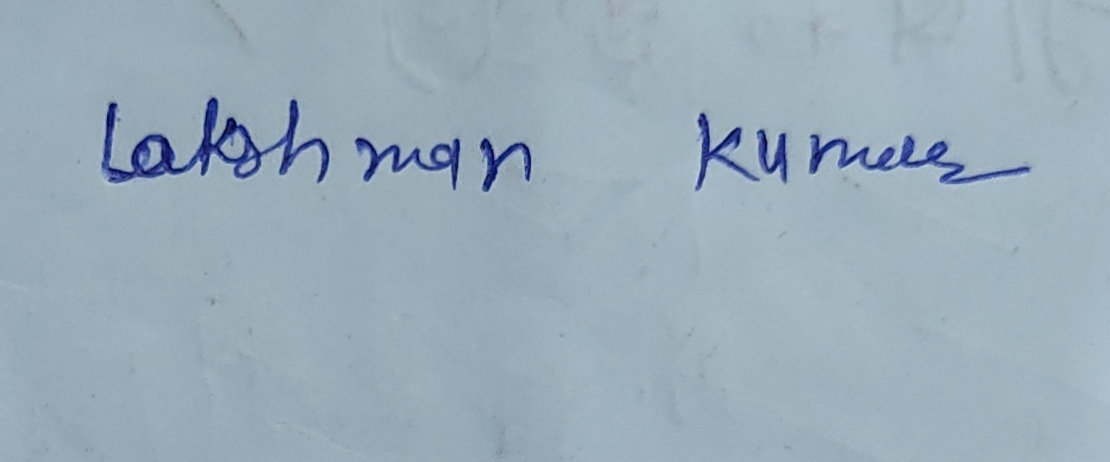 Lakshman Kumar